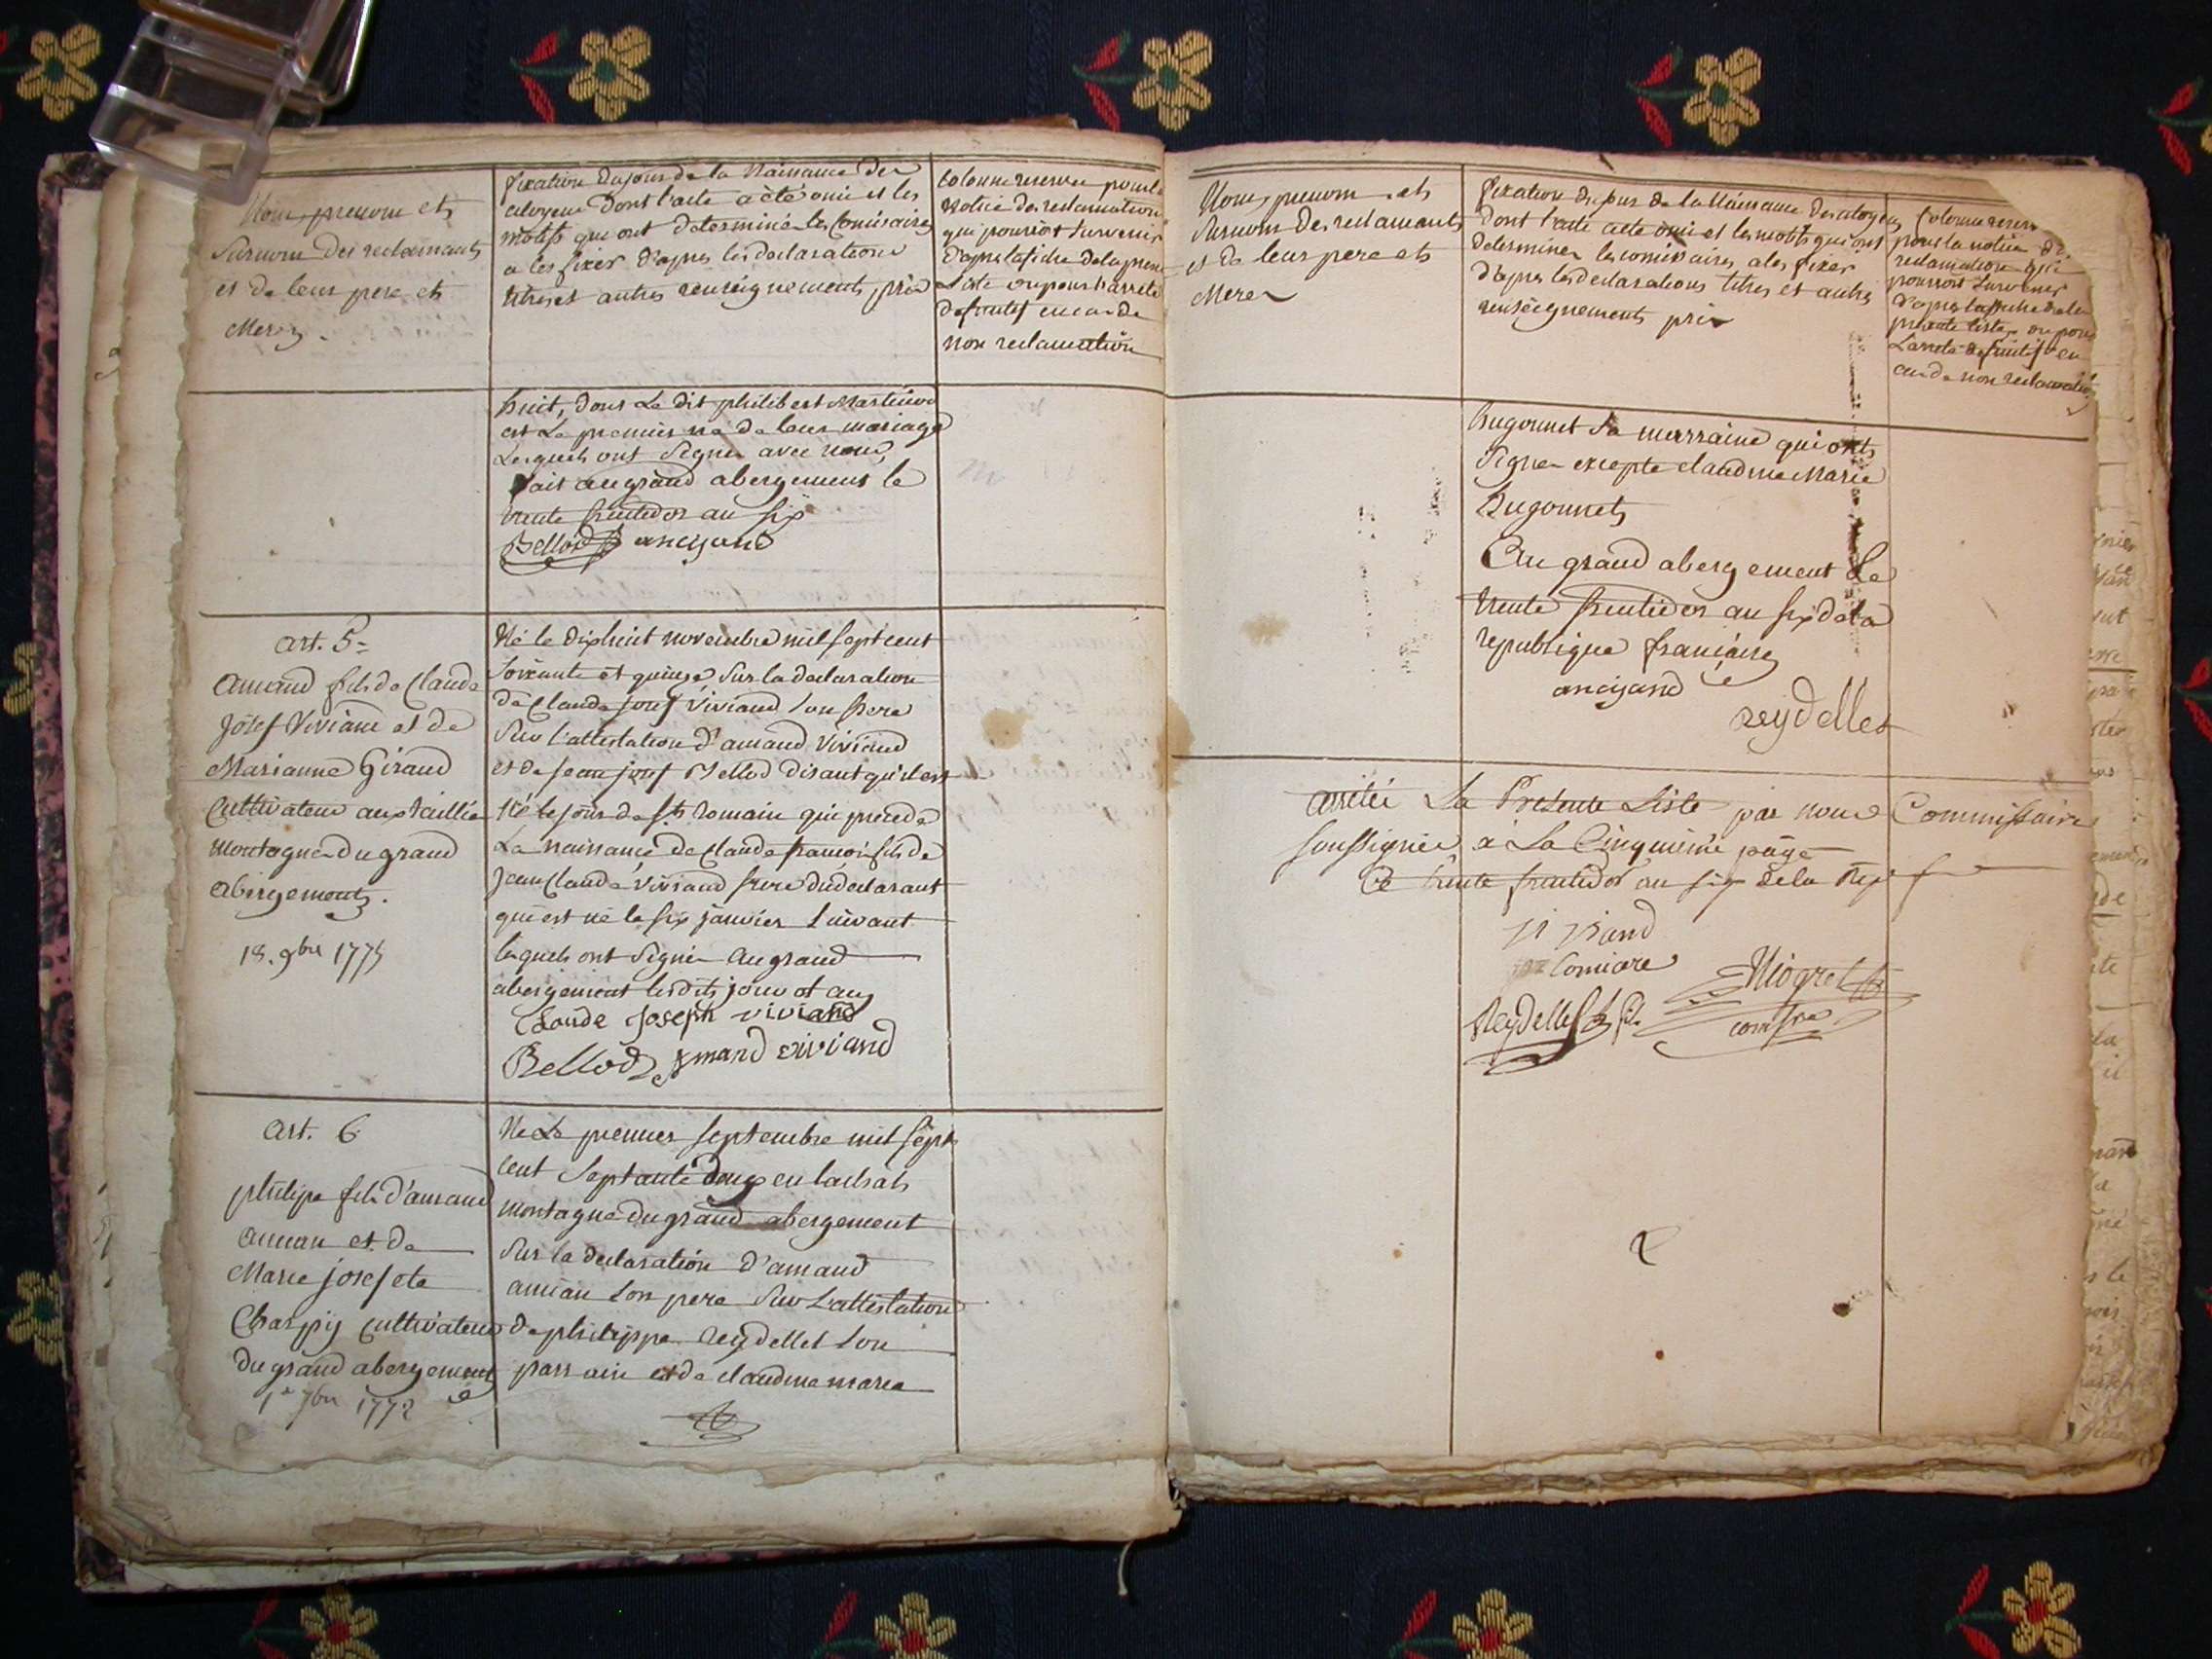 Nom, prenom et
Surnom des reclamants
et de leur pere et
Mere
fixation du jour de la Naissance des
citoyens dont l'acte a été omis et les
motifs qui ont determiné les Comisaires
a les fixer d'apres les declarations
titres et autres renseignements pris
Colonne reservée pour la
Notice des reclamations
qui pourroit survenir
d'apres lafiche de la presente
Liste ou pour l'arreté
definitif en cas de
non reclamation
huit, dont Le dit philibert Martinod
est Le premier né de leur mariage
Lesquels ont Signé avec nous,
fait au grand abergement le
trente fructidor an six
Bellod ancijand
art. 5
amand fils de Claude
Josef Viviand et de
Marianne Giraud
Cultivateur aux
montagne du grand
abergement.
18. 9bre 1775
Né le dixhuit novembre mil sept cent
soixante et quinze sur la declaration
de Claude Josef Viviand son pere
Sur l'attestation d'amand Viviand
et de Jean josef Bellod disant qu'il est
Né le jour de st romain qui precede
La naissance de Claude francois fils de
Jean Claude Viviand frere du declarant
qui est né le six janvier suivant
lesquels ont signé au grand
abergement lesdits jour et an
Claude Joseph viviand
Bellod amand viviand
art. 6
philipe fils d'amand
et de
Marie josefete
Charpy cultivateur
du grand abergement
1er 7bre 1772
Né Le premier septembre mil sept
cent septante deux en
montagne du grand abergement
sur la declaration d'amand
son pere sur L'attestation
de philippe reydellet son
parrain et de claudine marie
Nom, prenom et
Surnom des reclamants
et de leur pere et
Mere
fixation du jour de la Naissance des citoyens
dont l'acte a été omis et les motifs qui ont
determiner les comissaires a les fixer
d'apres les declarations titres et autres
renseignements pris
Colonne
pour la notice de
reclamation qui
pourroit survenir
d'apres laffiche de la
presente liste ou pour
L'arreté definitif en
cas de non reclamation
hugonnet sa marraine qui ont
signer excepté claudine Marie
hugonnet
Au grand abergement Le
trente fructidor an six de la
republique française
ancijand
reydellet
arrêtée La Présente Liste par nous Commissaires
soussignés à La Cinquième page
Ce trente fructidor an six de la Rep. f
Reydellet
Niogret